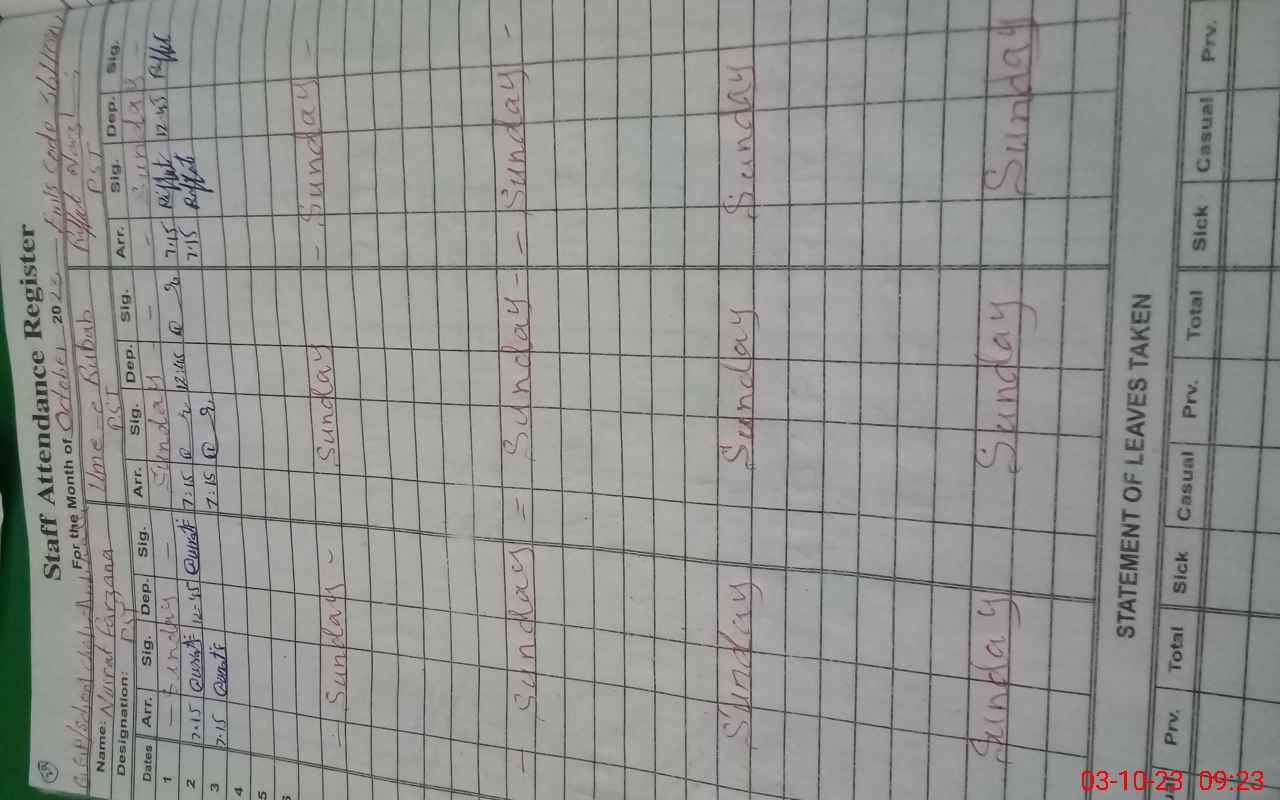 Staff Attendance Register
For the Month of October 2023
Name: Nusrat Farzana Ume-e Rubab Riffat
Designation: PST PST PST
Dates Arr. Sig. Dep. Sig. Arr. Sig. Dep. Sig. Arr. Sig. Dep. Sig.
1 - Sunday - Sunday - - Sunday -
2 7.15 12-45 7:15 12:45 7.15 Riffat 12.45 Riffat
3 7.15 7:15 7.15 Riffat
4
5
6
- Sunday - Sunday - Sunday -
- Sunday = Sunday - = Sunday -
Sunday Sunday Sunday
Sunday Sunday Sunday
STATEMENT OF LEAVES TAKEN
Prv. Total Sick Casual Prv. Total Sick Casual Prv.
03-10-23 09:23